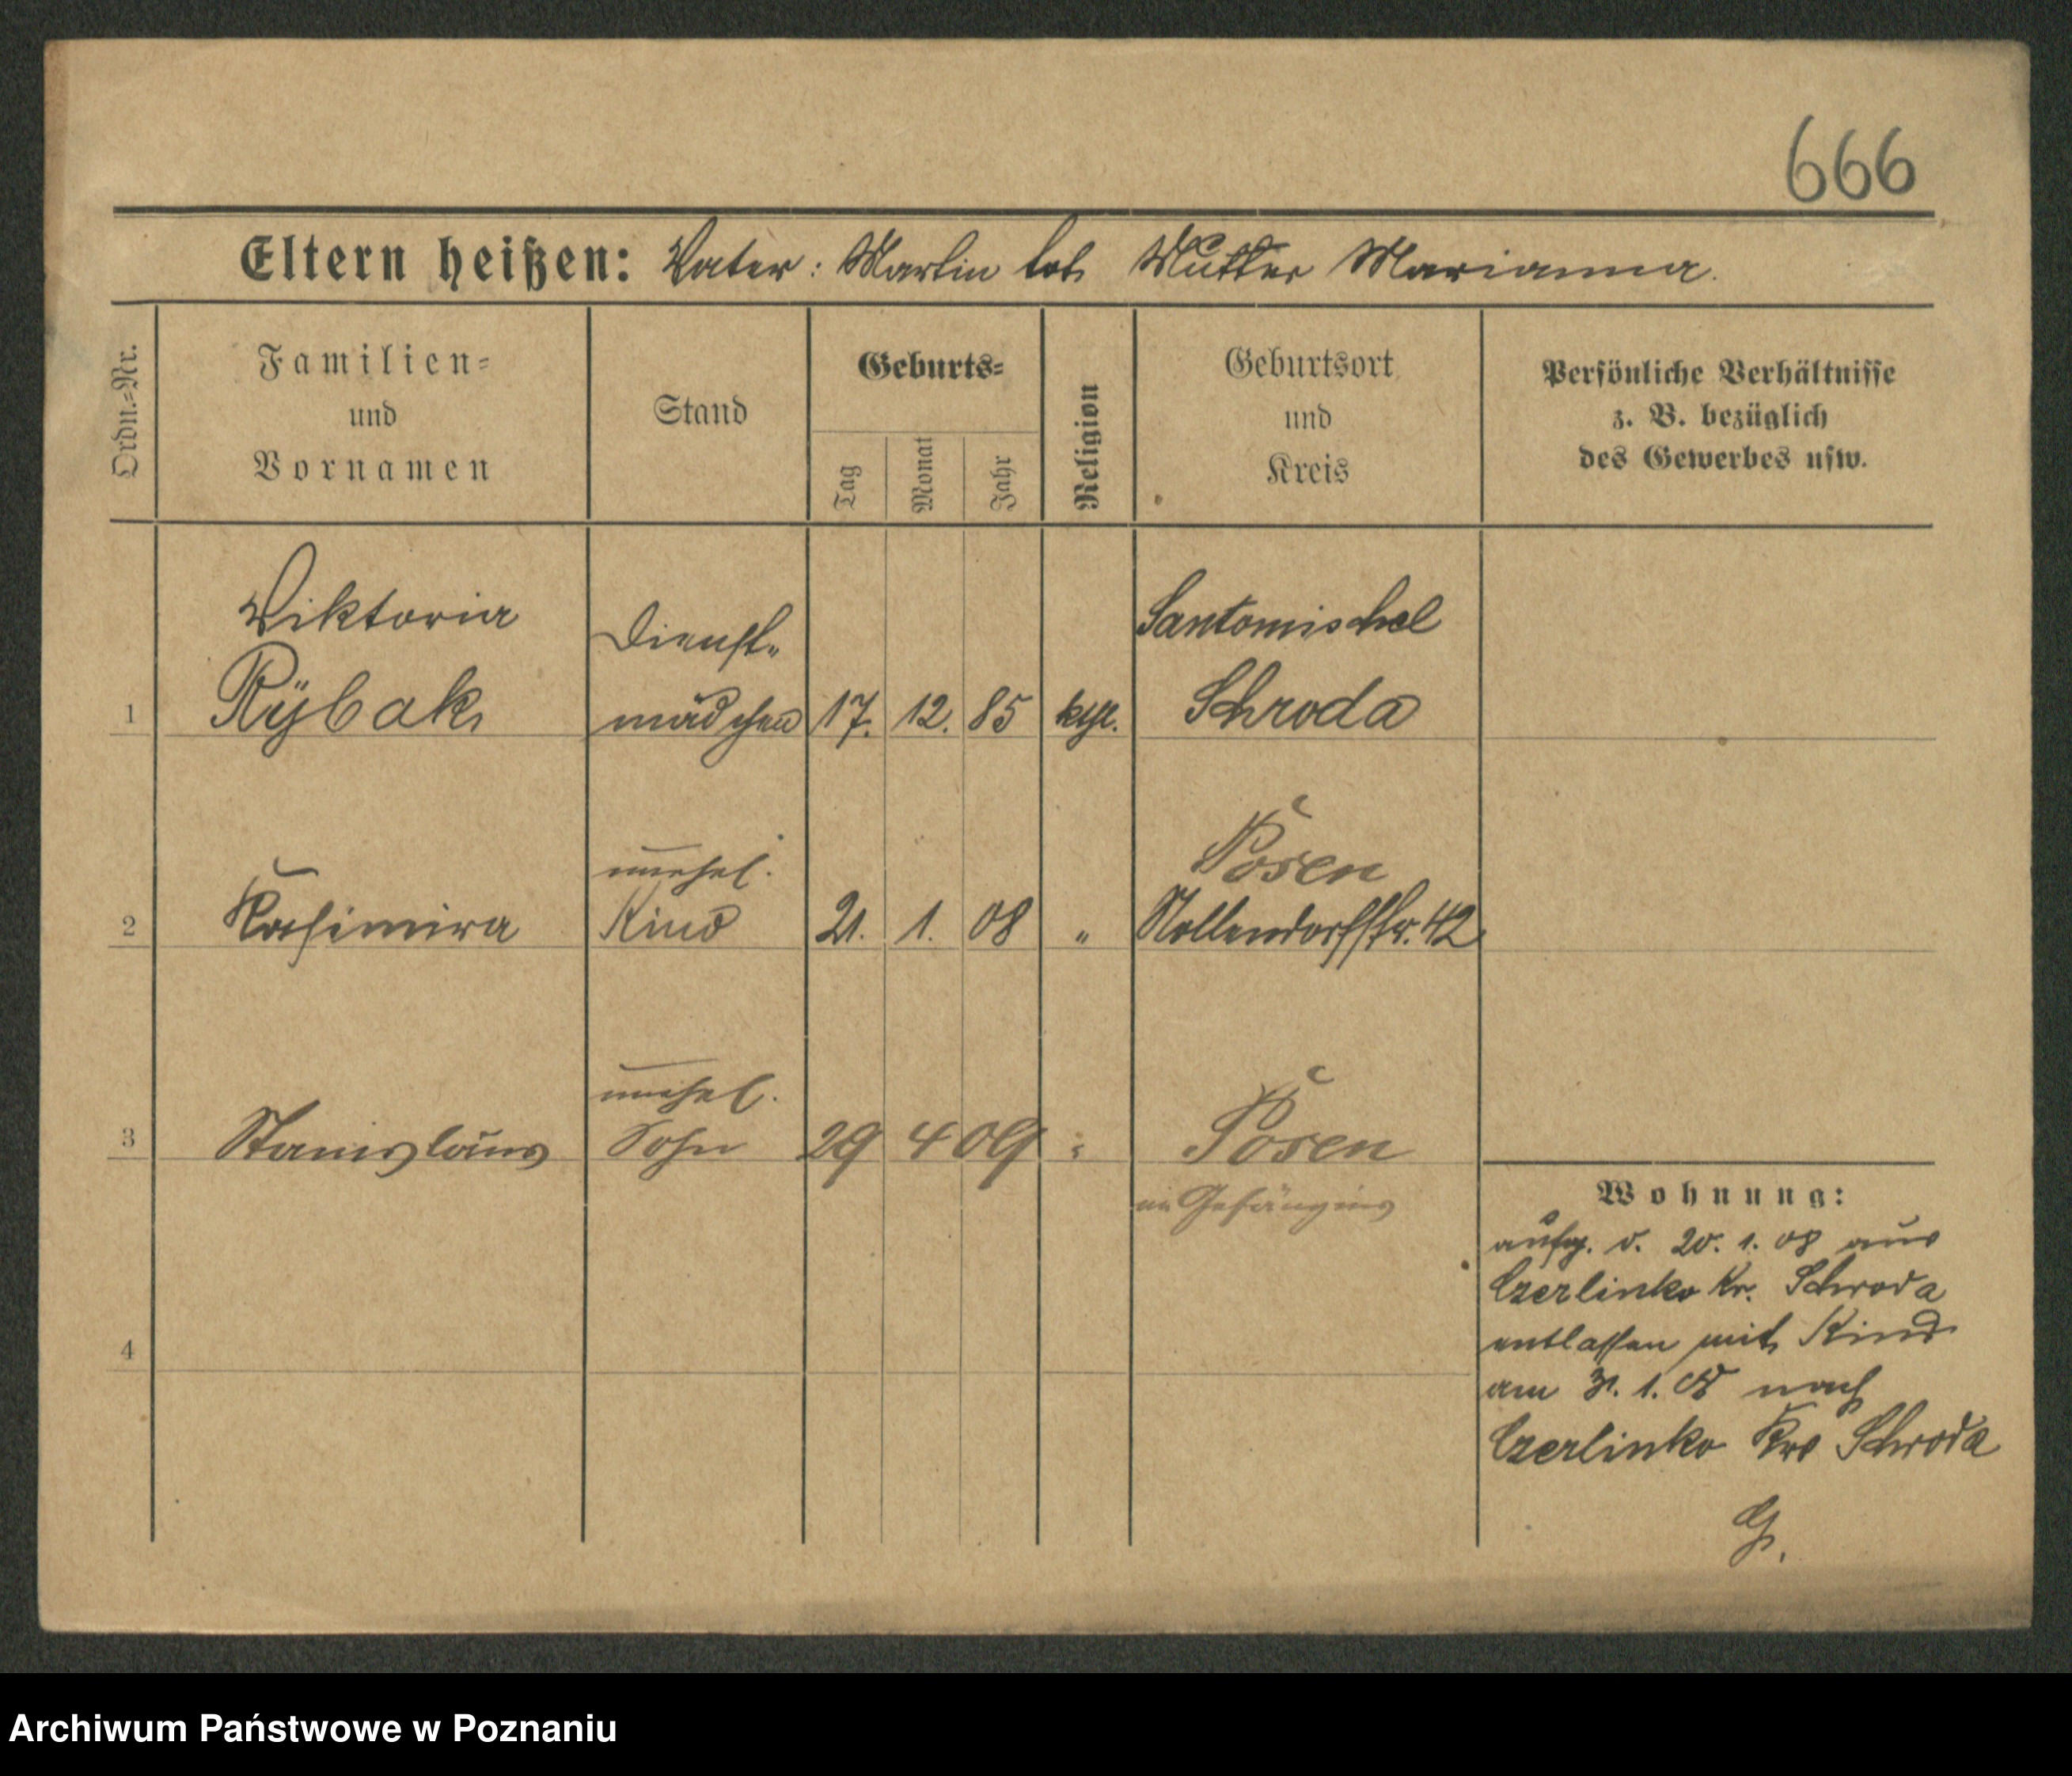 666
Eltern heißen: Vater: Martin tot Mutter Marianna.
Ordn.-Nr.
Familien-
und
Vornamen
Stand
Geburts-
Tag
Monat
Jahr
Religion
Geburtsort
und
Kreis
Persönliche Verhältnisse
z. B. bezüglich
des Gewerbes usw.
1
Viktoria
Rybak
Dienst-
mädchen
17. 12. 85
kth.
Santomischel
Schroda
2
Kasimira
unehel.
Kind
21. 1. 08
"
Posen
Nollendorffstr. 42
3
Stanislaus
unehel.
Sohn
29 4 09
Posen
im Gefängnis
4
Wohnung:
aufg. d. 20. 1. 08 aus
Czerlinko Kr. Schroda
entlassen mit Kind
am 31. 1. 08 nach
Czerlinko Krs Schroda
G.
Archiwum Państwowe w Poznaniu